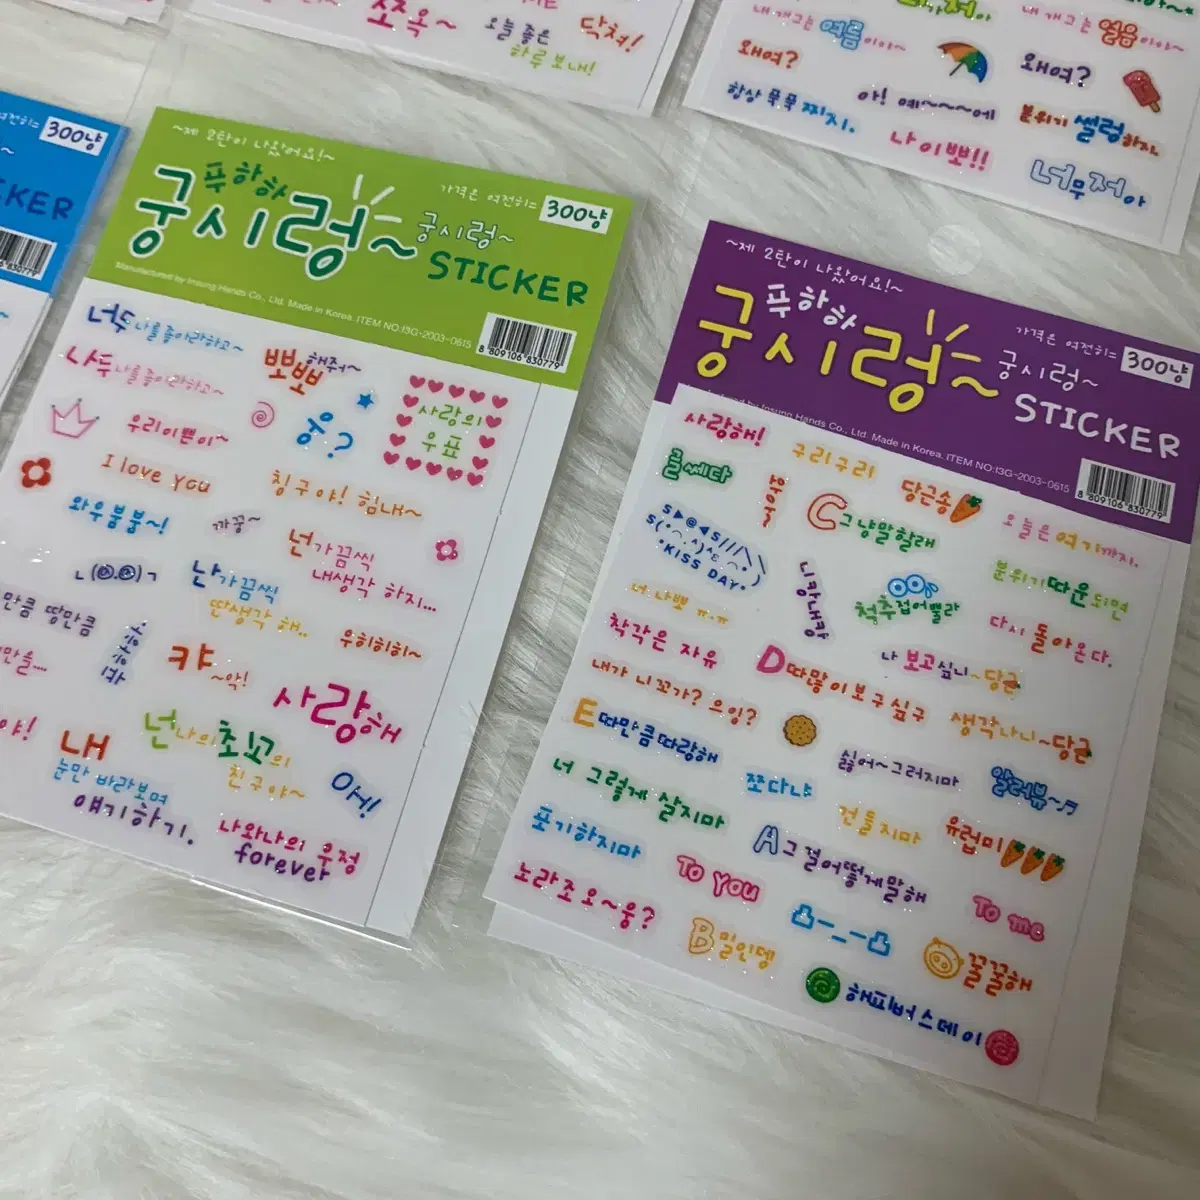 쏘쪽~
오늘 좋은
하루 보내!
닥쳐!
내 개그는 여름이야~
왜여?
항상 푹푹 찌지.
아! 예~~~에
나 이뽀!!
내 개그는 얼음이야~
왜여?
분위기 썰렁하지
너무저아
300냥
STICKER
~제 2탄이 나왔어요!~
푸하하
궁시렁~
가격은 여전히= 300냥
궁시렁~
STICKER
Manufactured by Insung Hands Co., Ltd. Made in Korea. ITEM NO:I3G-2003-0615
8 809106 830779
너두 나를 좋아라하고~
나두 나를 좋아라하고~
뽀뽀뽀 해줘~
사랑의
우표
웅?
우리이쁜이~
I love you
칭구야! 힘내~
와우붐붐~!
까꿍~
넌 가끔씩
내생각 하지...
ㄴ(@.@)ㄱ
난 가끔씩
딴생각 해..
만큼 땅만큼
우히히히~
캬~악!
사랑해
내
눈만 바라보며
얘기하기.
넌 나의 초꼬의
친구야~
어서!
나와나의 우정
forever
~제 2탄이 나왔어요!~
푸하하
궁시렁~
가격은 여전히= 300냥
궁시렁~
STICKER
by Insung Hands Co., Ltd. Made in Korea. ITEM NO:I3G-2003-0615
8 809106 830779
사랑해!
구리구리
당근송
글쎄다
악어~
C 그냥말할래
오늘은 여기까지.
KISS DAY
니캉내캉
척추접어뿔라
분위기 따운되면
너 나빠 ㅠ.ㅠ
다시 돌아온다.
착각은 자유
D 따많이보구싶구
나 보고싶니~당근
내가 니꼬가? 으잉?
생각나니~당근
E 따만큼따랑해
싫어~그러지마
알러뷰~♬
너 그렇게 살지마
쪼다냐
건들지마
유런미
포기하지마
A 그걸어떻게말해
To You
To me
노라조오~웅?
B 밀인뎅
ㅗ-_-ㅗ
꿀꿀해
해피버스데이